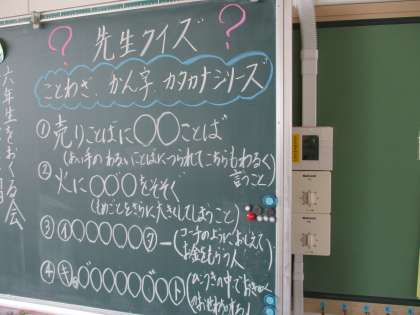 六年生をおくる会
? 先生クイズ ?
ことわざ かん字 カタカナシリーズ
① 売りことばに〇〇ことば
(あい手のわるいことばにつられてこちらもわるく
言うこと)
② 火に〇〇〇をそそぐ
(もめごとをさらに大きくしてしまうこと)
③ イ〇〇〇〇〇〇ター
コーチのようにおしえて
お金をもらう人